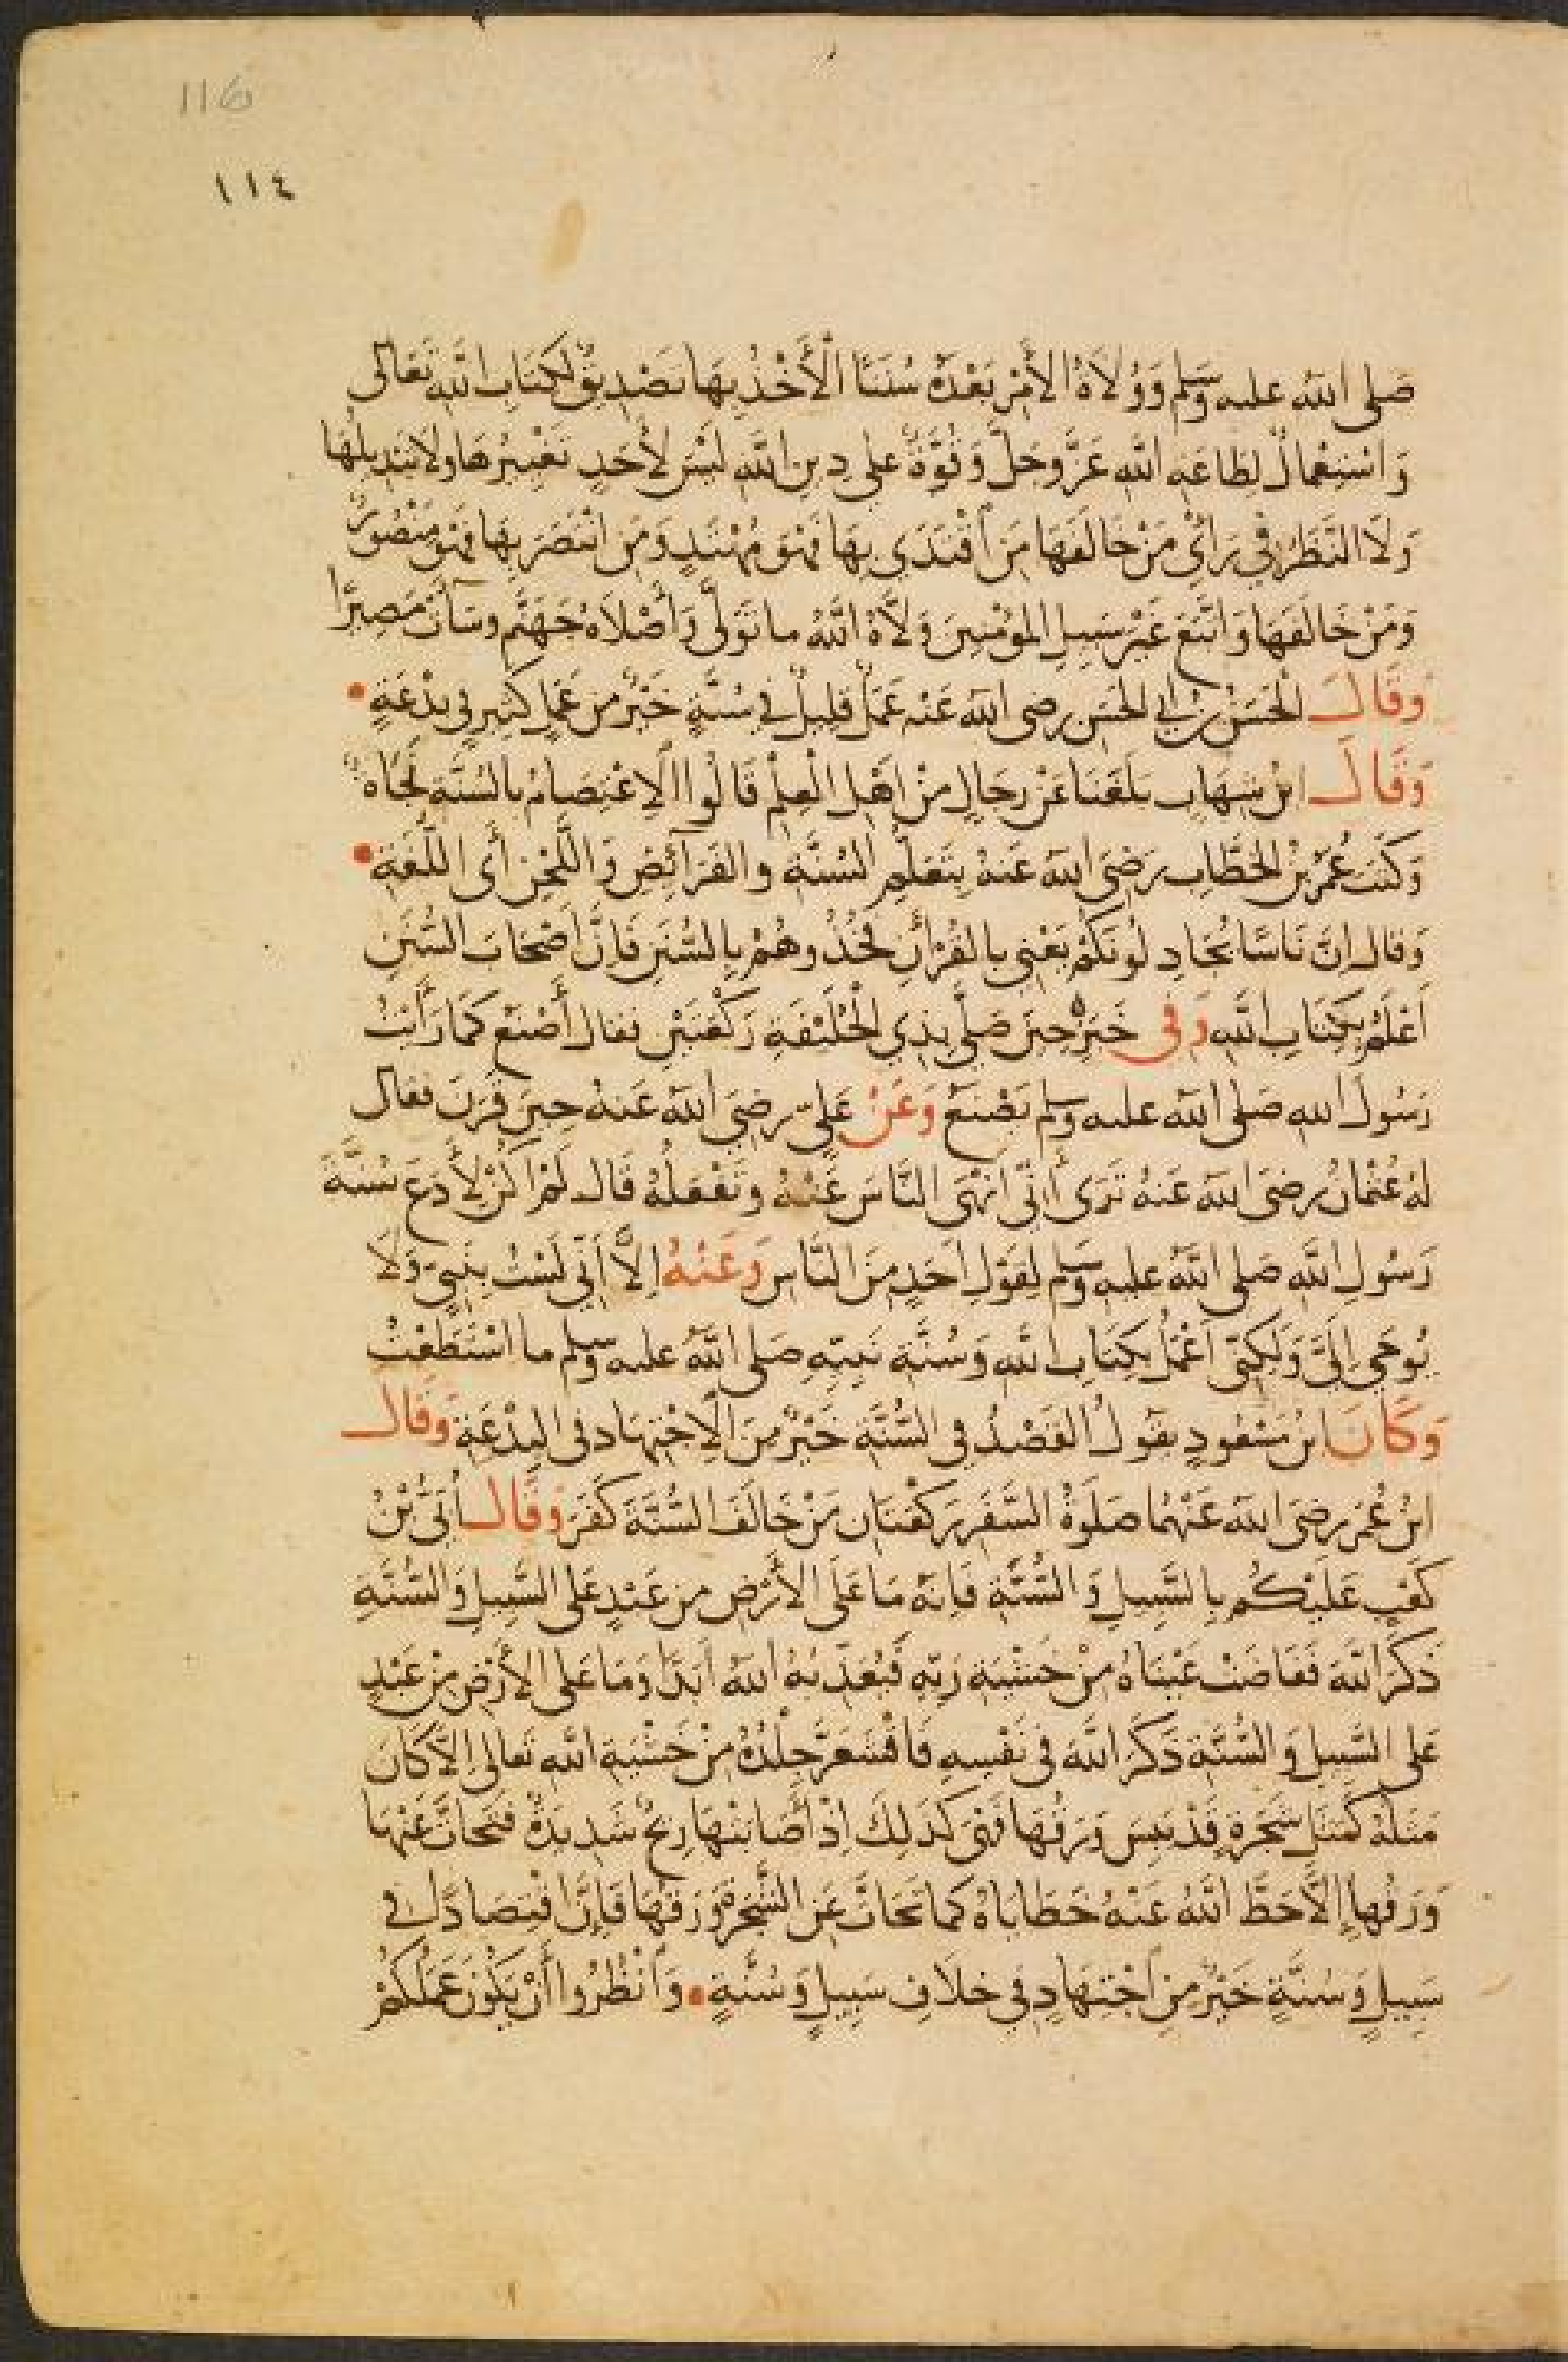 116
١١٤
صَلى اللهُ عليه وسَلم وَوُلَاةُ الأَمْرِ بَعْدَهُ سُنَنًا الْأَخْذُ بِهَا تصْدِيقٌ لكِتَابِ اللهِ تَعَالى
وَاسْتِعْمالٌ لِطَاعَةِ اللهِ عَزَّ وجَلَّ وَقُوَّةٌ على دِينِ اللهِ لَيْسَ لأَحَدٍ تَغْيِيرُهَا ولاتَبدِيلُهَا
وَلَا النَّظَرُ فِي رَأْيِ مَنْ خَالَفَهَا مَنِ اَقْتَدَي بِهَا فَهْوَ مُهْتَدٍ وَمَنِ انْتَصَرَ بِهَا فَهْوَ مَنْصُورٌ
وَمَنْ خَالَفَهَا وَاتَّبَعَ غَيْرَ سَبِيلِ المؤْمِنِينَ وَلَّاهُ اللهُ ما تَوَلَّى وَأَصْلَاهُ جَهَنَّم وسَآءَتْ مَصِيرًا
وَقَالَ الحَسَنُ بنُ ابي الحَسَنِ رضي الله عَنه عَمَلٌ قَلِيلٌ فِي سُنَّةٍ خَيْرٌ من عَمَلٍ كَثِيرٍ في بِدْعَةٍ
وَقَالَ ابنُ شِهَابٍ بَلَغَنَا عَنْ رِجَالٍ مِنْ اَهْلِ الْعِلْمِ قَالُوا اَلِاعْتِصَامُ بالسُّنَّةِ نَجَاةٌ
وَكَتَبَ عُمَرُ بْنُ الخَطَّابِ رَضيَ اللهُ عَنهُ بِتَعَلُّمِ السُّنَّةِ والفَرَآئِضِ وَاللَّحْنِ أَي اللُّغَةِ
وَقال اِنَّ نَاسًا يُجَادِلُونَكُمْ يَعْنِي بالقُرْآنِ فَخُذُوهُمْ بِالسُّنَنِ فَاِنَّ اَصْحَابَ السُّنَنِ
اَعْلَمُ بِكِتَابِ اللهِ وَفي خَبَرِهِ حِينَ صَلَّى بِذِي الْحُلَيْفَةِ رَكْعَتَيْنِ فقال أَصْنَعُ كَمَا رَأَيْتُ
رَسُولَ الله صَلى الله عليه وسلم يَصْنَعُ وَعَنْ عَلِيّ رضيَ الله عَنهُ حِينَ قَرَنَ فقال
لهُ عُثْمانُ رضيَ الله عَنهُ تَرَى أَنّي انْهَى النَّاسَ عَنْهُ وتَفْعَلُهُ قَال لَمْ اَكُنْ لِأَدَعَ سُنَّةَ
رَسُولِ اللهِ صَلى اللهُ عليه وسَلم لِقَوْلِ اَحَدٍ مِنَ النَّاسِ وَعَنْهُ اِلَّا اَنّي لَسْتُ بِنَبِيّ وَلَا
يُوحَى اِلَيَّ وَلكِنّي اَعْمَلُ بكِتَابِ اللهِ وَسُنَّةِ نَبِيّهِ صَلى اللهُ عليه وسلم ما اسْتَطَعْتُ
وَكَانَ ابنُ مَسْعُودٍ يقولُ القَصْدُ في السُّنَّةِ خَيْرٌ مِنَ الْاِجْتِهَاد في البِدْعَةِ وَقال
ابنُ عُمَرَ رضيَ الله عَنْهُما صَلَوةُ السَّفَرِ رَكْعَتَانِ مَنْ خَالَفَ السُّنَّةَ كَفَرَ وَقَال أُبَيُّ بْنُ
كَعْبٍ عَلَيْكُم بِالسَّبِيلِ وَالسُّنَّةِ فَاِنّهُ مَا عَلَى الأَرْضِ مِن عَبْدٍ عَلى السَّبِيلِ وَالسُّنَّةِ
ذَكَرَ اللهَ فَفَاضَتْ عَيْنَاهُ مِنْ خَشْيَةِ رَبّهِ فَيُعَذّبُهُ اللهُ اَبَدًا وَمَا عَلى الأَرْضِ مِنْ عَبْدٍ
عَلى السَّبِيلِ وَالسُّنَّةِ ذَكَرَ اللهَ في نَفْسِهِ فَاقْشَعَرَّ جِلْدُهُ مِنْ خَشْيَةِ اللهِ تَعالى اِلَّا كَانَ
مَثَلُهُ كَمَثَلِ شَجَرةٍ قَدْ يَبِسَ وَرَقُهَا فَهْيَ كَذَلِكَ اِذْ أَصَابَتْهَا رِيحٌ شَدِيدَةٌ فَتَحَاتَّ عَنْهَا
وَرَقُها اِلَّا حَطَّ اللهُ عَنْهُ خَطَايَاهُ كَما تَحَاتَّ عَنِ الشَّجَرةِ وَرَقُهَا فَاِنَّ اقْتِصَادًا في
سَبِيلٍ وَسُنَّةٍ خَيْرٌ مِنِ اَجْتِهَادٍ فِي خلَافِ سَبِيلٍ وَسُنَّةٍ وَاَنْظُرُوا أَنْ يَكُونَ عَمَلُكُمْ